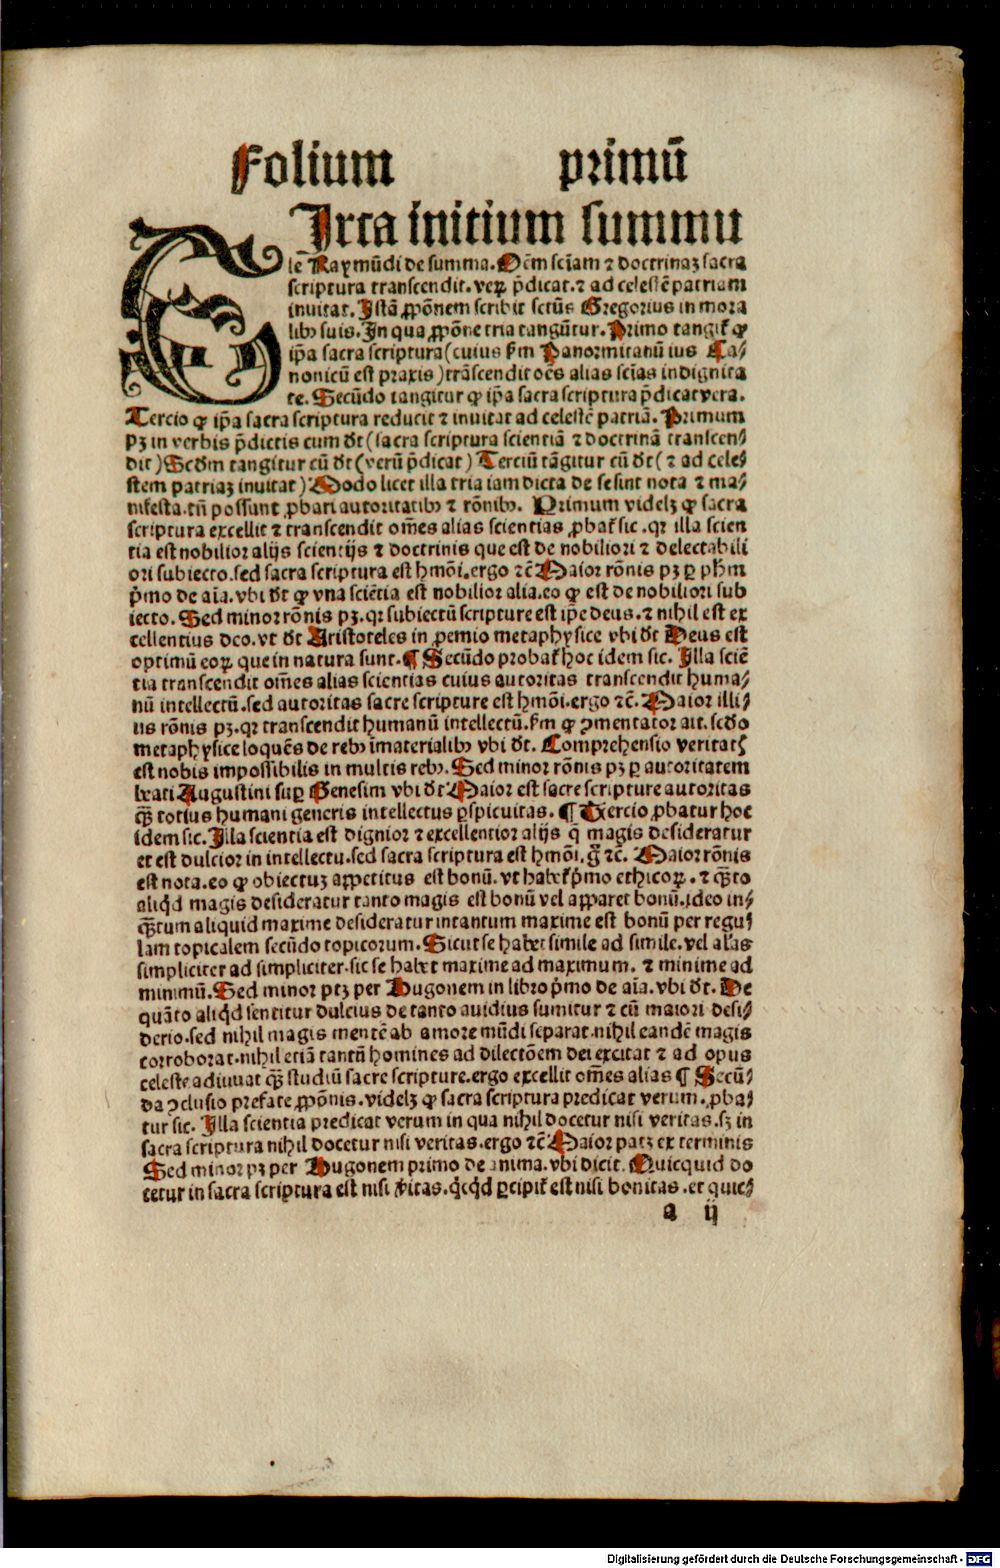 Folium primũ
CIrca initium summu
lē Raymũdi de summa. Oēm sciam ⁊ doctrinaꝫ sacra
scriptura transcendit. veꝝ p̄dicat. ⁊ ad celestē patriam
inuitat. Istā ꝓpōnem scribit sctūs Gregorius in mora
libꝫ suis. In qua ꝓpōne tria tangūtur. Primo tangit̃ ꝙ
ip̄a sacra scriptura (cuius ẜm Panormitanū ius Ca⸗
nonicū est praxis) trāscendit oēs alias scīas in dignita
te. Secūdo tangitur ꝙ ip̄a sacra scriptura p̄dicat vera.
Tercio ꝙ ip̄a sacra scriptura reducit ⁊ inuitat ad celestē patriā. Primum
pꝫ in verbis p̄dictis cum dr̄ (sacra scriptura scientiā ⁊ doctrinā transcen⸗
dit) Scd̄m tangitur cū dr̄ (verū p̄dicat) Terciū tāgitur cū dr̄ (⁊ ad cele⸗
stem patriaꝫ inuitat) Modo licet illa tria iam dicta de se sint nota ⁊ ma⸗
nifesta. tn̄ possunt ꝓbari autoritatibꝫ ⁊ rōnibꝫ. Primum videlꝫ ꝙ sacra
scriptura excellit ⁊ transcendit om̄es alias scientias ꝓbat̃ sic. qꝛ illa scien
tia est nobilior alijs scientijs ⁊ doctrinis que est de nobiliori ⁊ delectabili
ori subiecto. sed sacra scriptura est hm̄oi. ergo ⁊c̄ Maior rōnis pꝫ ꝑ ph̄m
p̄mo de aīa. vbi dr̄ ꝙ vna sciētia est nobilior alia. eo ꝙ est de nobiliori sub
iecto. Sed minor rōnis pꝫ. qꝛ subiectū scripture est ip̄e deus. ⁊ nihil est ex
cellentius deo. vt dr̄ Aristoteles in ꝓemio metaphysice vbi dr̄ Deus est
optimū eoꝝ que in natura sunt. ¶ Secūdo probat̃ hoc idem sic. Illa sciē
tia transcendit om̄es alias scientias cuius autoritas transcendit huma⸗
nū intellectū. sed autoritas sacre scripture est hm̄oi. ergo ⁊c̄. Maior illi⸗
us rōnis pꝫ. qꝛ transcendit humanū intellectū. ẜm ꝙ ꝯmentator ait. scd̄o
metaphysice loquēs de rebꝫ īmaterialibꝫ vbi dr̄. Comprehensio veritatꝭ
est nobis impossibilis in multis rebꝫ. Sed minor rōnis pꝫ ꝑ autoritatem
beati Augustini suꝑ Genesim vbi dr̄ Maior est sacre scripture autoritas
qꝫ̄ totius humani generis intellectus ꝑspicuitas. ¶ Tercio ꝓbatur hoc
idem sic. Illa scientia est dignior ⁊ excellentior alijs q̄ magis desideratur
et est dulcior in intellectu. sed sacra scriptura est hm̄oi. g̊ ⁊c̄. Maior rōnis
est nota. eo ꝙ obiectuꝫ appetitus est bonū. vt habet̃ p̄mo ethicoꝝ. ⁊ qꝫ̄to
aliqd̄ magis desideratur tanto magis est bonū vel apparet bonū. ideo in⸗
qꝫ̄tum aliquid maxime desideratur intantum maxime est bonū per regu⸗
lam topicalem secūdo topicorum. Sicut se habet simile ad simile. vel al̓as
simpliciter ad simpliciter. sic se habet maxime ad maximum. ⁊ minime ad
minimū. Sed minor ptꝫ per Hugonem in libro p̄mo de aīa. vbi dr̄. De
quāto aliqd̄ sentitur dulcius de tanto auidius sumitur ⁊ cū maiori desi⸗
derio. sed nihil magis mentē ab amore mūdi separat. nihil eandē magis
corroborat. nihil etiā tantū homines ad dilectōem dei excitat ⁊ ad opus
celeste adiuuat qꝫ̄ studiū sacre scripture. ergo excellit om̄es alias ¶ Secū⸗
da ꝯclusio prefate ꝓpōnis. videlꝫ ꝙ sacra scriptura predicat verum. ꝓba⸗
tur sic. Illa scientia predicat verum in qua nihil docetur nisi veritas. sꝫ in
sacra scriptura nihil docetur nisi veritas. ergo ⁊c̄ Maior patꝫ ex terminis
Sed minor pꝫ per Hugonem primo de anima. vbi dicit. Quicquid do
cetur in sacra scriptura est nisi v̓itas. qͥcqͥd ꝑcipit̃ est nisi bonitas. et quic⸗
a ij
Digitalisierung gefördert durch die Deutsche Forschungsgemeinschaft - DFG